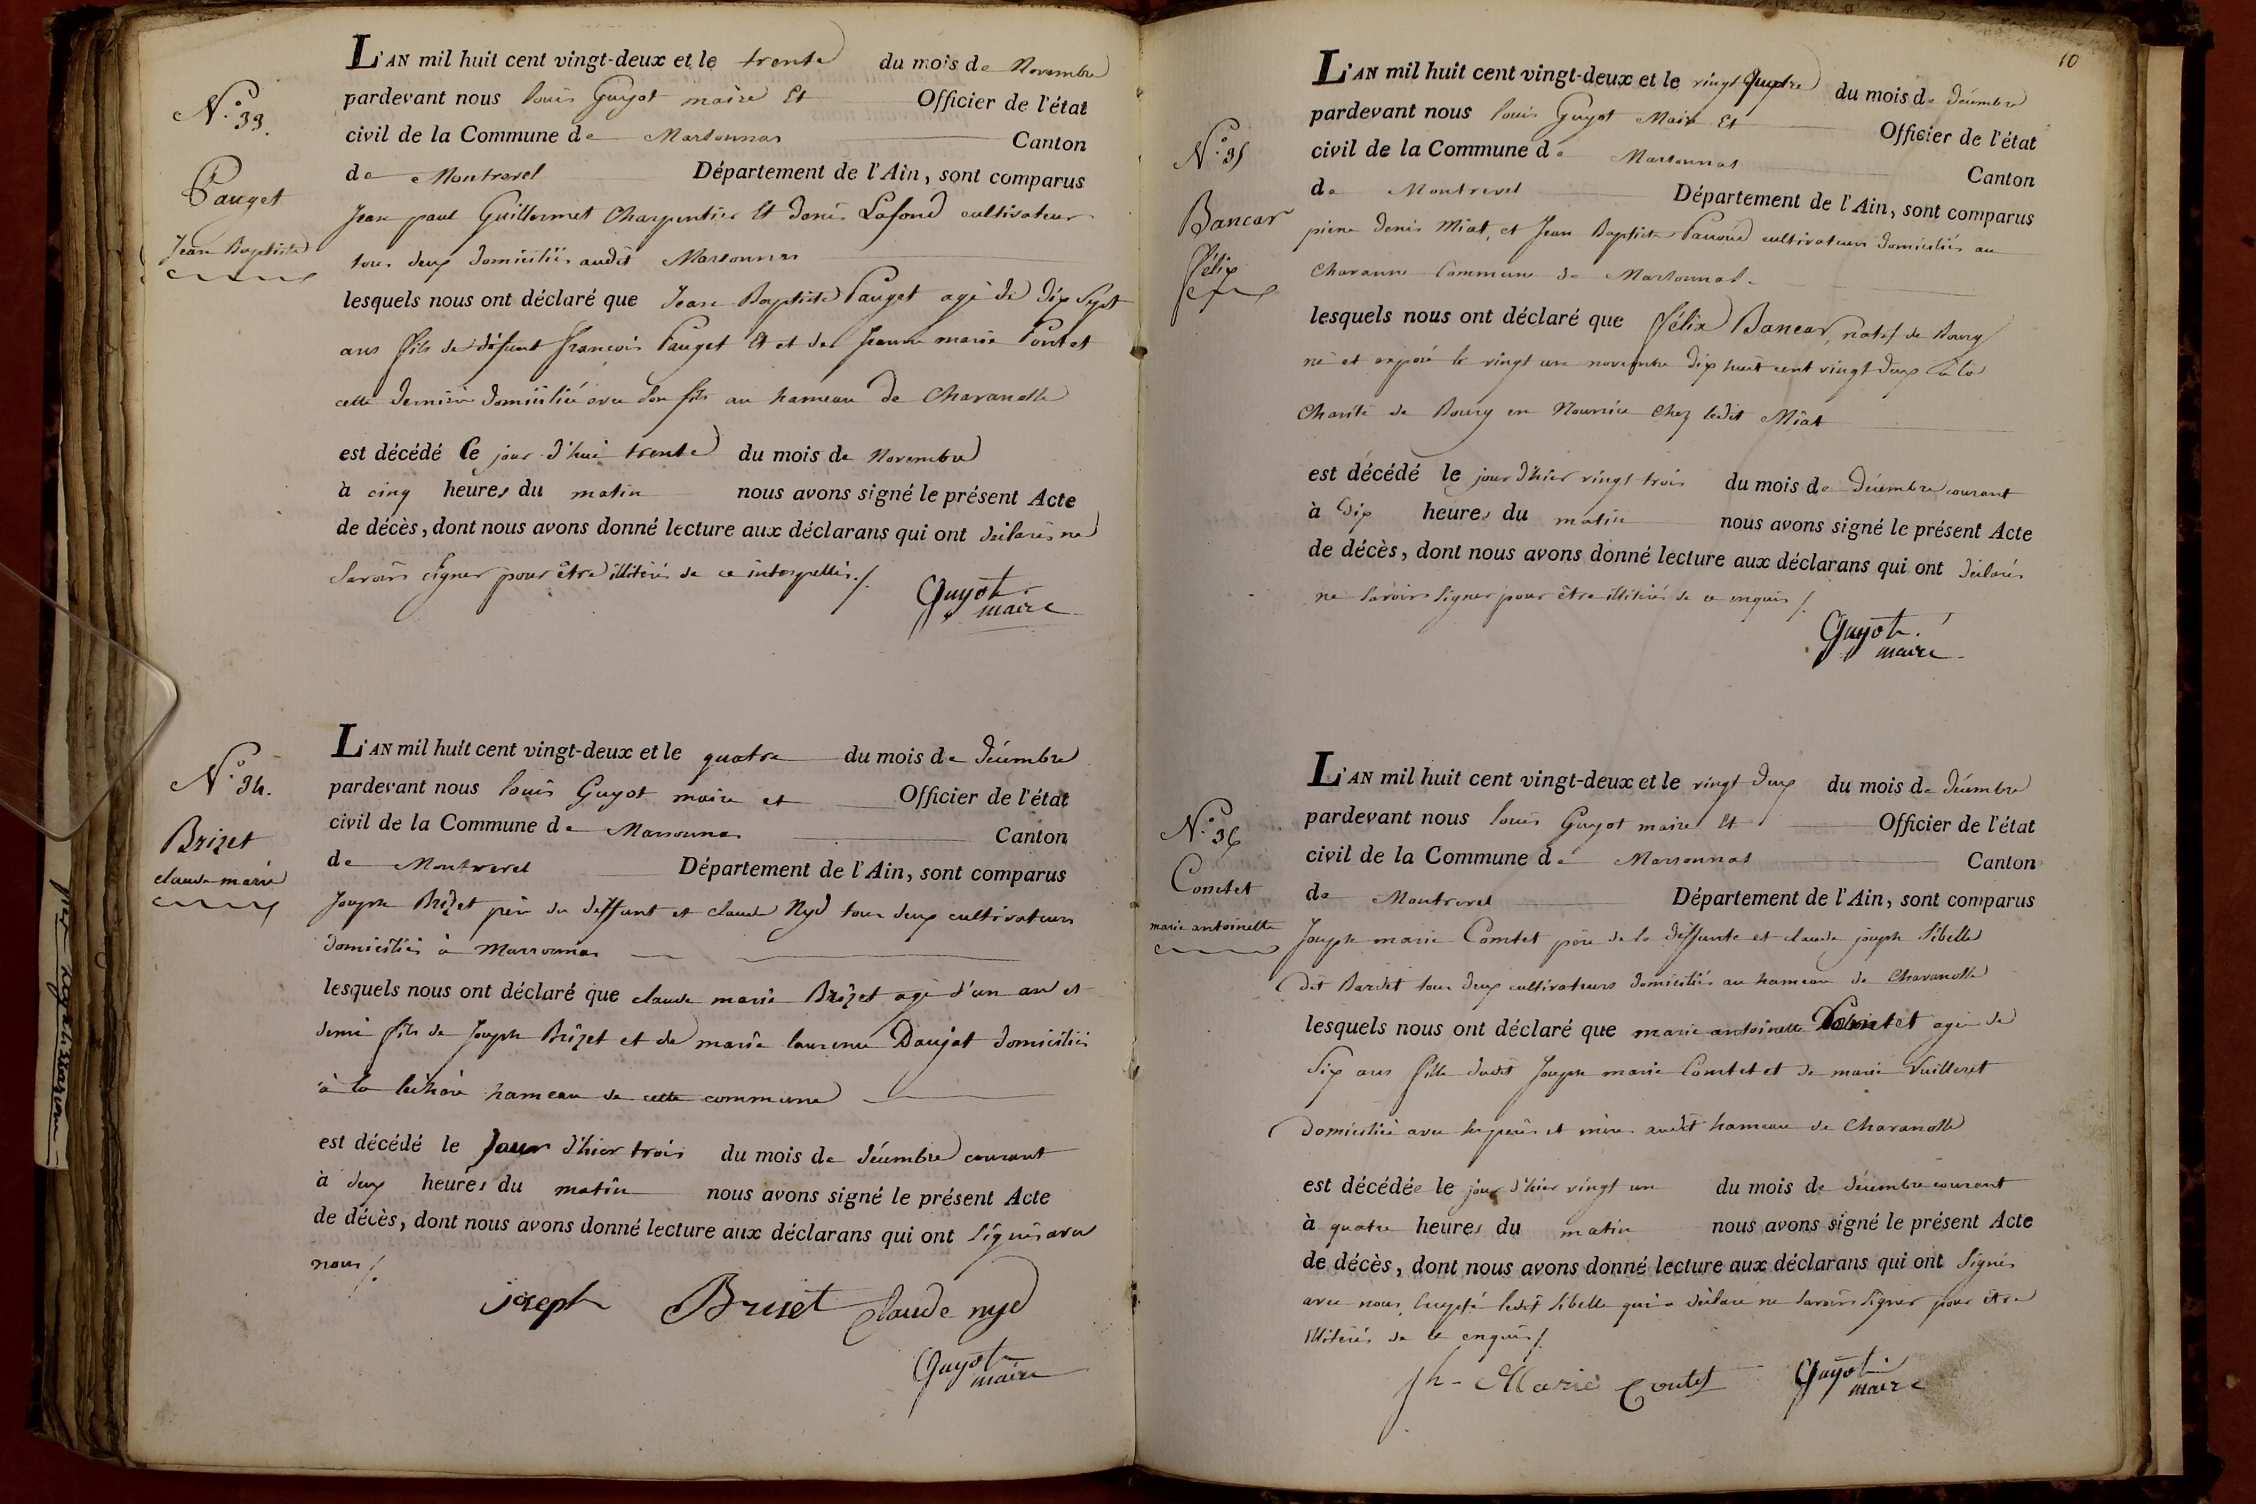 N.° 33.
Pauget
Jean Baptiste
L'AN mil huit cent vingt-deux et le trente du mois de Novembre
pardevant nous louis Guyot maire Et Officier de l'état
civil de la Commune de Marsonnas Canton
de Montrevel Département de l'Ain, sont comparus
Jean paul Guillermet Charpentier Et denis Lafond cultivateur
tous deux domiciliés audit Marsonnas
lesquels nous ont déclaré que Jean Baptiste Pauget agé de dix sept
ans fils de défunt françois Pauget Et et de Jeanne marie Pontet
cette dernière domiciliée avec son fils au hameau de Charanolle
est décédé Ce jour d'hui trente du mois de Novembre
à cinq heures du matin nous avons signé le présent Acte
de décès, dont nous avons donné lecture aux déclarans qui ont déclarés ne
savoirs signer pour être illitérés de ce interpellés ./.
Guyot
maire
N.° 34.
Brizet
claude marie
L'AN mil huit cent vingt-deux et le quatre du mois de décembre
pardevant nous louis Guyot maire et Officier de l'état
civil de la Commune de Marsonnas Canton
de Montrevel Département de l'Ain, sont comparus
Joseph Brizet père du deffunt et claude Nyd tous deux cultivateurs
domiciliés à Marsonnas
lesquels nous ont déclaré que claude marie Brizet agé d'un an et
demi fils de Joseph Brizet et de marie laurence Daujat domiciliés
à la hameau de cette commune
est décédé le Jour d'hier trois du mois de décembre courant
à deux heures du matin nous avons signé le présent Acte
de décès, dont nous avons donné lecture aux déclarans qui ont signés avec
nous ./.
joseph Briset Claude nyd
Guyot
maire
10
N.° 35
Bancar
félix
L'AN mil huit cent vingt-deux et le vingt quatre du mois de décembre
pardevant nous louis Guyot Maire Et Officier de l'état
civil de la Commune de Marsonnas Canton
de Montrevel Département de l'Ain, sont comparus
pierre denis Miat, et Jean Baptiste cultivateurs domiciliés au
Charanne Commune de Marsonnas.
lesquels nous ont déclaré que félix Bancar, natif de Bourg
né et exposé le vingt un novembre dix huit cent vingt deux à la
Charité de Bourg en Nourrice Chez ledit Miat
est décédé le jour d'hier vingt trois du mois de décembre courant
à dix heures du matin nous avons signé le présent Acte
de décès, dont nous avons donné lecture aux déclarans qui ont déclarés
ne savoirs signer pour être illitérés de ce enquis ./.
Guyot.
maire
N.° 36
Comtet
marie antoinette
L'AN mil huit cent vingt-deux et le vingt deux du mois de décembre
pardevant nous louis Guyot maire Et Officier de l'état
civil de la Commune de Marsonnas Canton
de Montrevel Département de l'Ain, sont comparus
Joseph marie Comtet père de la deffunte et claude joseph Sibelle
dit Bardet tous deux cultivateurs domiciliés au hameau de Charanolle
lesquels nous ont déclaré que marie antoinette Comtet agée de
six ans fille dudit Joseph marie Comtet et de marie Vuilleret
domiciliée avec ses père et mère audit hameau de Charanolle
est décédée le jour d'hier vingt un du mois de décembre courant
à quatre heures du matin nous avons signé le présent Acte
de décès, dont nous avons donné lecture aux déclarans qui ont signés
avec nous, excepté ledit Sibelle qui a déclaré ne savoirs signer pour être
illitérés de ce enquis ./.
Jh - Marie Contet Guyot
maire